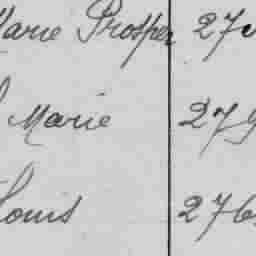 Marie Prosper 27
Marie 279
Louis 276